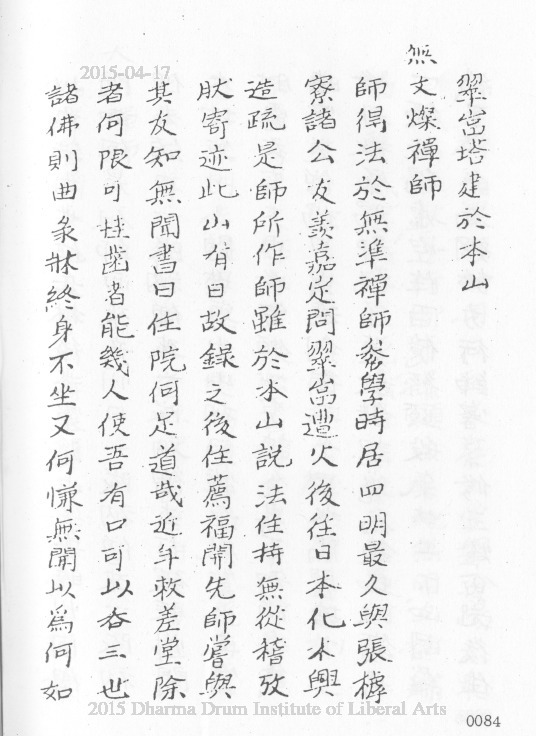 2015-04-17
翠嵓塔建於本山
無文燦禪師
師得法於無準禪師叅學時居四明最久與張樗
寮諸公友善嘉定間翠嵓遭火後往日本化木興
造疏是師所作師雖於本山說法住持無從稽攷
肰寄迹此山有日故錄之後住薦福開先師嘗與
其友知無聞書曰住院何足道哉近年敕差堂除
者何限可挂齒者能幾人使吾有口可以吞三世
諸佛則曲彔牀終身不坐又何慊無聞以爲何如
2015 Dharma Drum Institute of Liberal Arts
0084